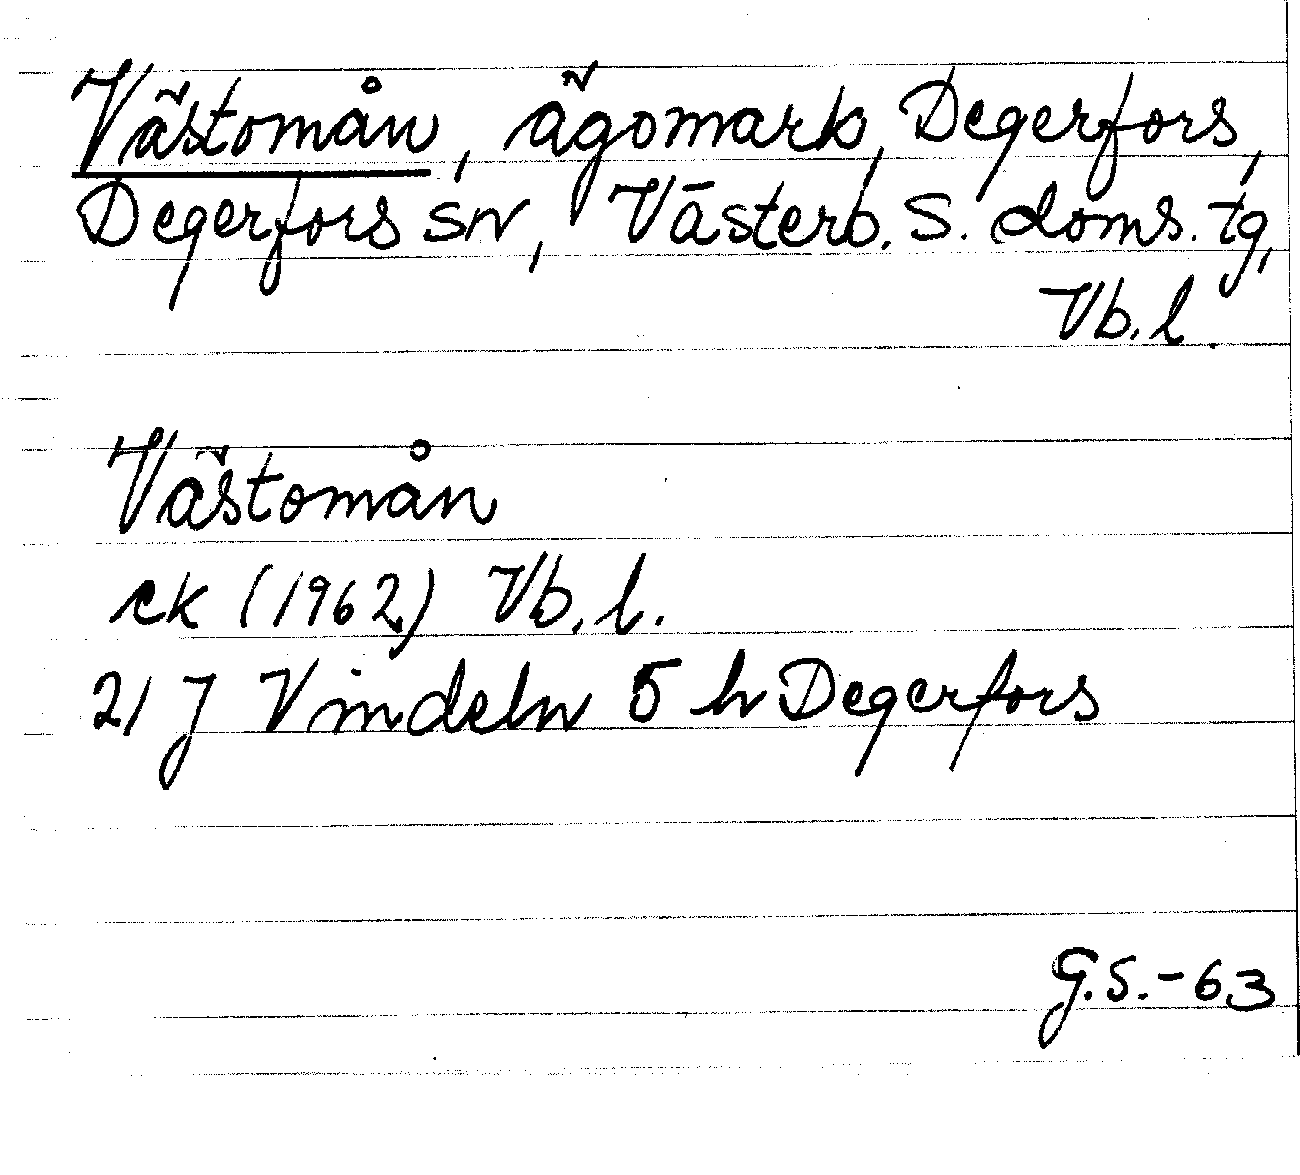 Västomån, ägomark, Degerfors,
Degerfors sn, Västerb. S. doms. tg,
Vb. l.
Västomån
ek (1962) Vb. l.
21 J Vindeln 5 h Degerfors
G.S.-63